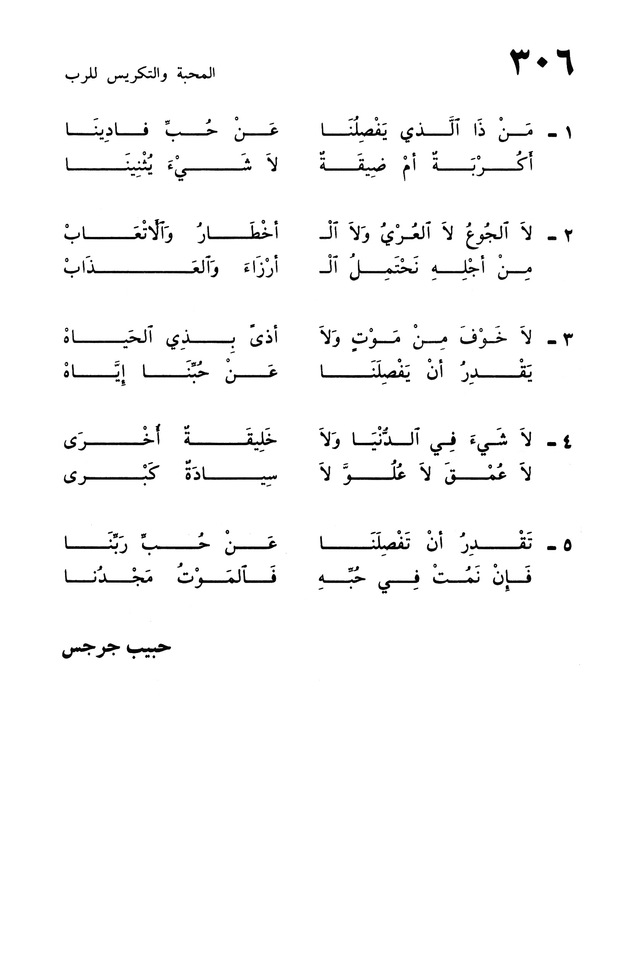 ٣٠٦
المحبة والتكريس للرب
١ - مَنْ ذَا ٱلَّذي يَفْصِلُنَا عَنْ حُبِّ فادِينَا
أَكُرْبَةٌ أمْ ضيقَةٌ لاَ شَيْءَ يُثْنِينَا
٢ - لاَ ٱلجُوعُ لاَ ٱلعُرْيُ وَلاَ ٱلْـ أخْطَارُ وَٱلأَتْعَابْ
مِنْ أجْلِهِ نَحْتَمِلُ ٱلْـ أرْزَاءَ وَٱلعَذَابْ
٣ - لاَ خَوْفَ مِنْ مَوْتٍ وَلاَ أذىً بِذِي ٱلحَيَاهْ
يَقْدِرُ أنْ يَفْصِلَنَا عَنْ حُبِّنَا إيَّاهْ
٤ - لاَ شَيءَ فِي ٱلدُّنْيَا وَلاَ خَلِيقَةٌ أُخْرَى
لاَ عُمْقَ لاَ عُلُوَّ لاَ سِيادَةٌ كَبْرى
٥ - تَقْدِرُ أنْ تَفْصِلَنَا عَنْ حُبِّ رَبِّنَا
فَإِنْ نَمُتْ فِي حُبِّهِ فَٱلمَوْتُ مَجْدُنا
حبيب جرجس